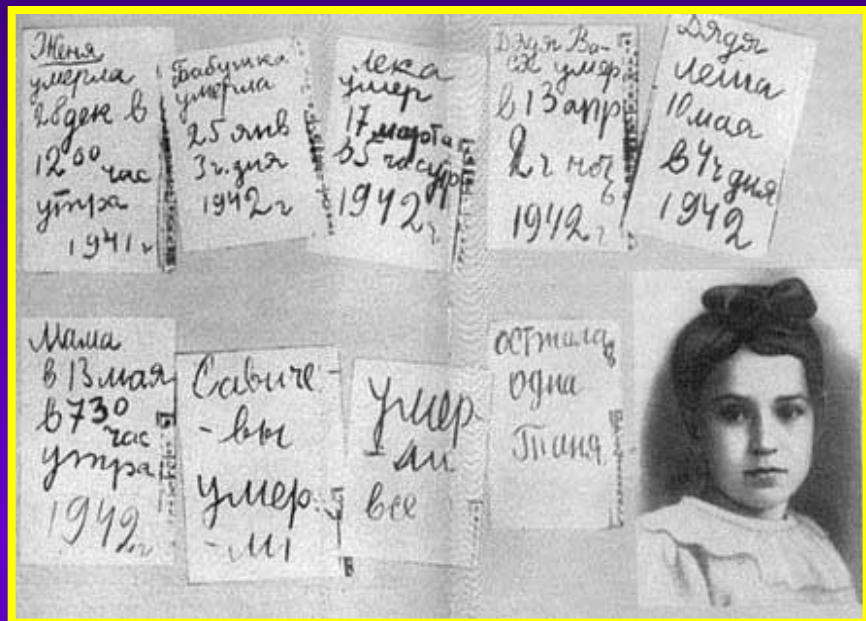 Женя
умерла
28 дек в
12 00 час
утра
1941 г
Бабушка
умерла
25 янв
3 ч. дня
1942 г
Лека
умер
17 марта
в 5 час утр
1942 г
Дядя Ва-
ся умер
в 13 апр
2 ч ноч
ь
1942 г
Дядя
Леша
10 мая
в 4 ч дня
1942
Мама
в 13 мая
в 7 30
час
утра
1942 г
Савиче-
-вы
умер-
-ли
Умер
-ли
все
Осталась
одна
Таня